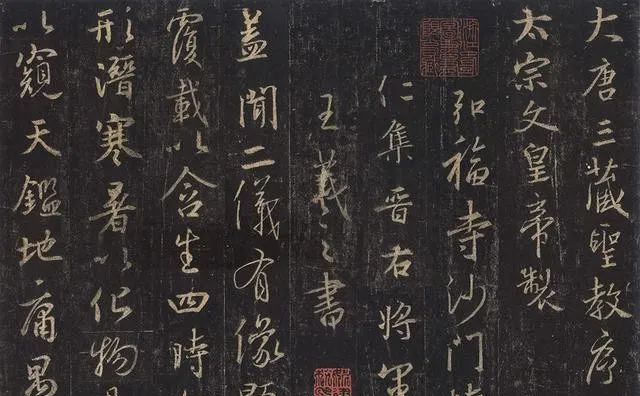 大唐三藏聖教序
太宗文皇帝製
弘福寺沙門
仁集晉右將軍
王羲之書
蓋聞二儀有像
覆載以含生四時
形潛寒暑以化物
以窺天鑑地庸